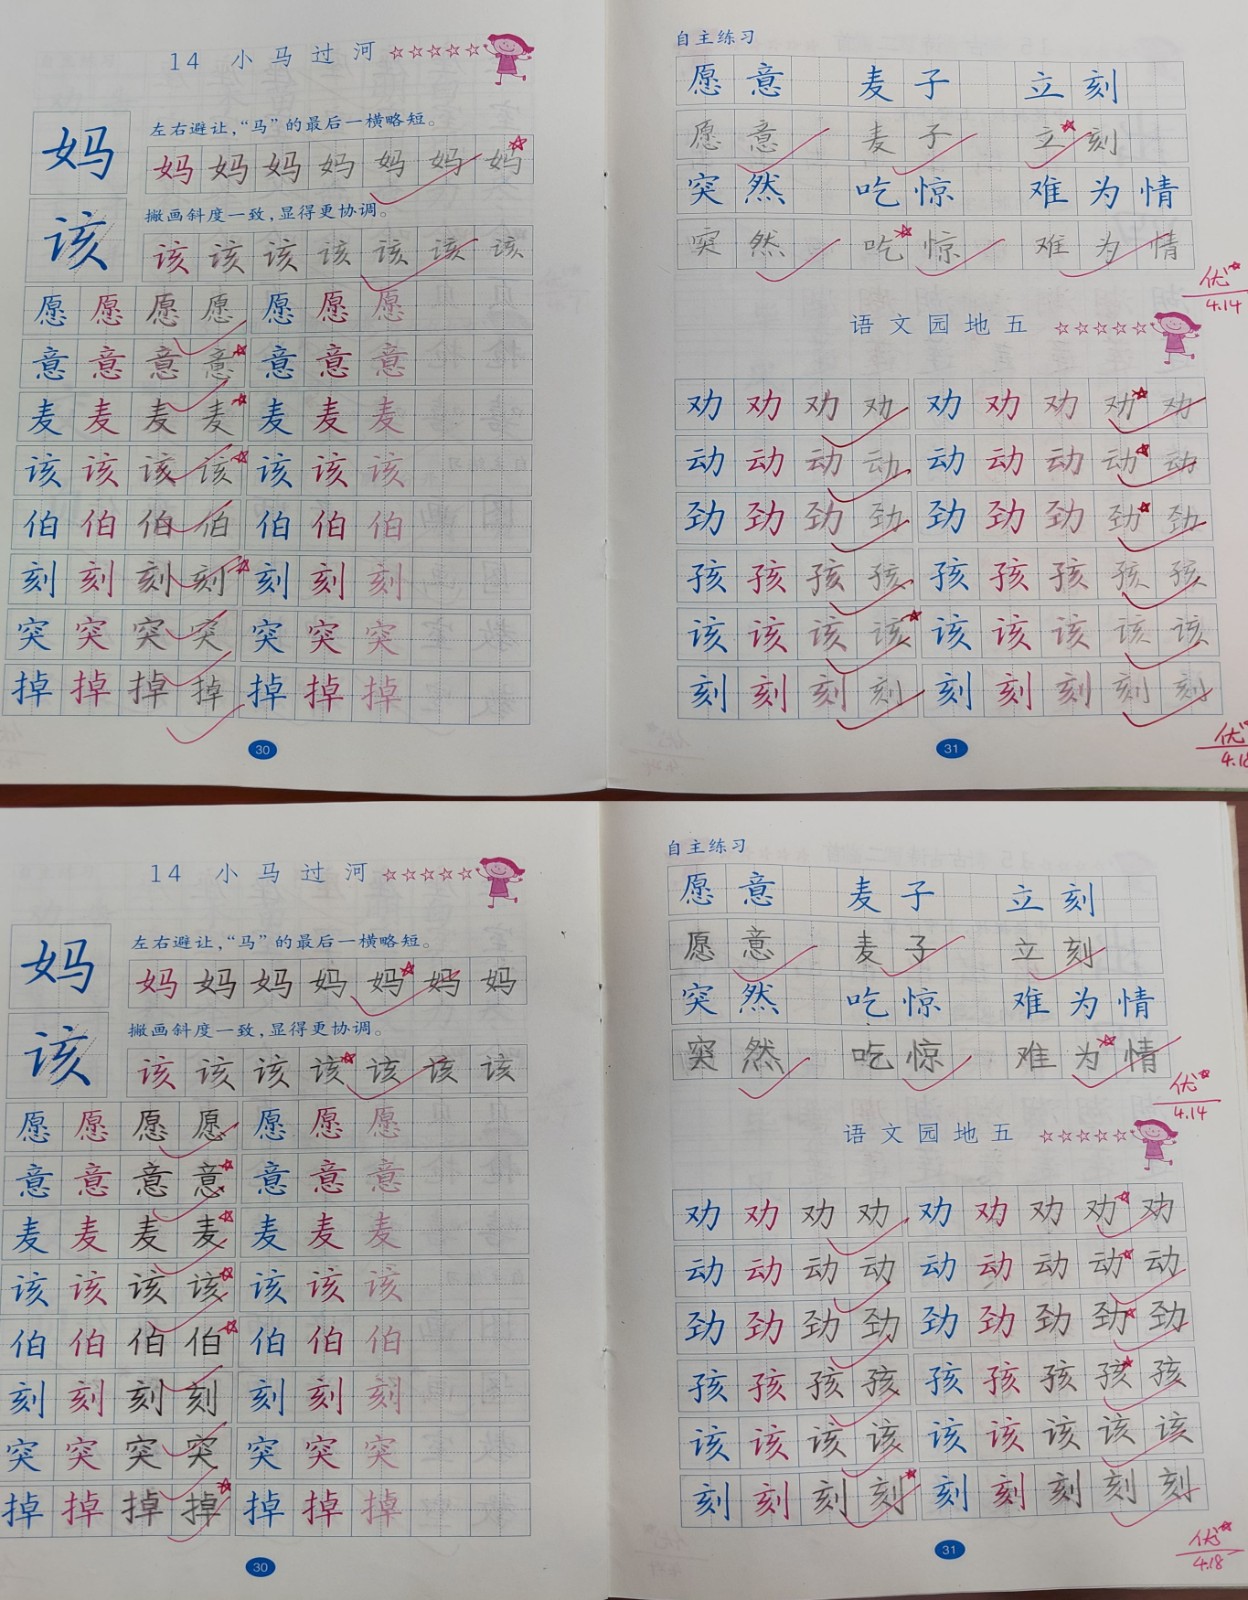 14 小马过河
妈
左右避让，“马”的最后一横略短。
妈 妈 妈 妈 妈 妈 妈
该
撇画斜度一致，显得更协调。
该 该 该 该 该 该 该
愿 愿 愿 愿 愿 愿 愿
意 意 意 意 意 意 意
麦 麦 麦 麦 麦 麦 麦
该 该 该 该 该 该 该
伯 伯 伯 伯 伯 伯 伯
刻 刻 刻 刻 刻 刻 刻
突 突 突 突 突 突 突
掉 掉 掉 掉 掉 掉 掉
30
自主练习
愿意 麦子 立刻
愿意 麦子 立刻
突然 吃惊 难为情
突然 吃惊 难为情
优
4.14
语文园地五
劝 劝 劝 劝 劝 劝 劝 劝 劝
动 动 动 动 动 动 动 动 动
劲 劲 劲 劲 劲 劲 劲 劲 劲
孩 孩 孩 孩 孩 孩 孩 孩 孩
该 该 该 该 该 该 该 该 该
刻 刻 刻 刻 刻 刻 刻 刻 刻
31
优
4.18
14 小马过河
妈
左右避让，“马”的最后一横略短。
妈 妈 妈 妈 妈 妈 妈
该
撇画斜度一致，显得更协调。
该 该 该 该 该 该 该
愿 愿 愿 愿 愿 愿 愿
意 意 意 意 意 意 意
麦 麦 麦 麦 麦 麦 麦
该 该 该 该 该 该 该
伯 伯 伯 伯 伯 伯 伯
刻 刻 刻 刻 刻 刻 刻
突 突 突 突 突 突 突
掉 掉 掉 掉 掉 掉 掉
30
自主练习
愿意 麦子 立刻
愿意 麦子 立刻
突然 吃惊 难为情
突然 吃惊 难为情
优
4.14
语文园地五
劝 劝 劝 劝 劝 劝 劝 劝 劝
动 动 动 动 动 动 动 动 动
劲 劲 劲 劲 劲 劲 劲 劲 劲
孩 孩 孩 孩 孩 孩 孩 孩 孩
该 该 该 该 该 该 该 该 该
刻 刻 刻 刻 刻 刻 刻 刻 刻
31
优
4.18